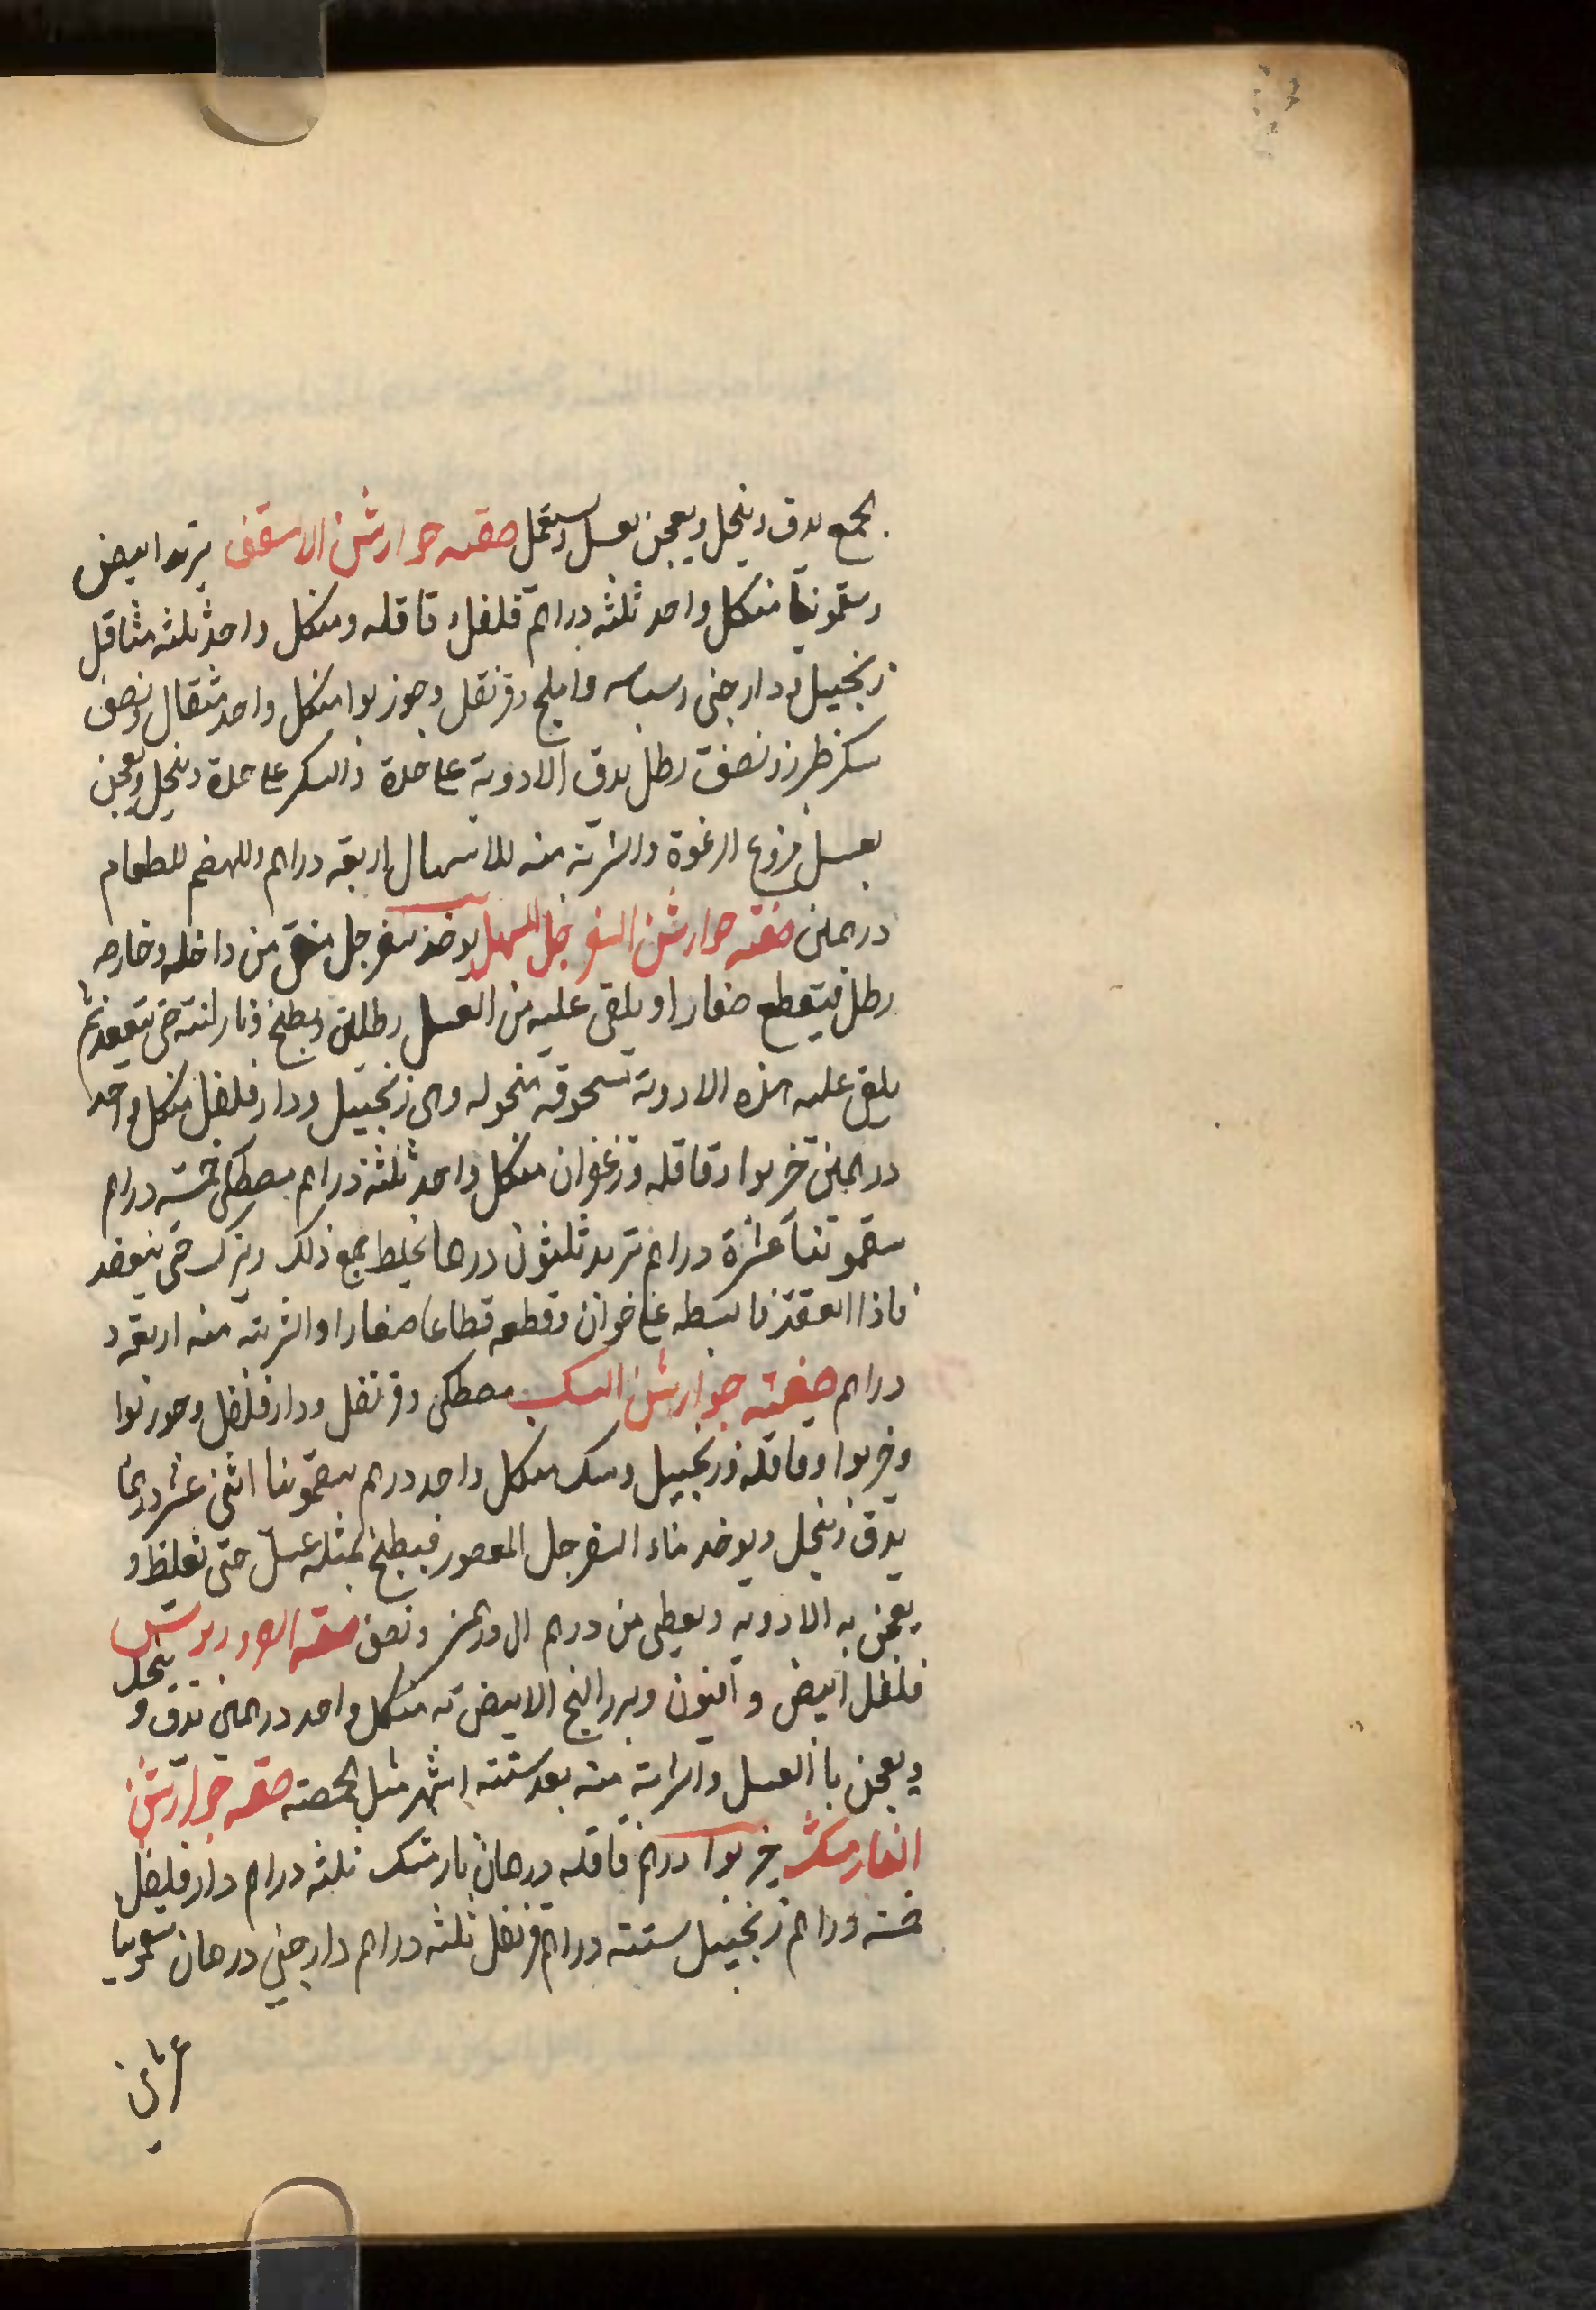 يجمع يدق وينخل ويعجن بعسل ويستعمل صفة جوارشن الاسقف تربد ابيض
وسقمونيا منكل واحد ثلثه دراهم فلفل وقاقله ومنكل واحد ثلثه مثاقل
زنجبيل ودارجنى وبسباسه واملج وقرنفل وجوزبوا منكل واحد مثقال ونصف
سكر طبرزد نصف رطل يدق الادوية على حدة والسكر على حدة وينخل ويعجن
بعسل منزوع الرغوة والشربة منه للاسهال اربعه دراهم وللهضم للطعام
درهمين صفة جوارشن السفرجل المسهل يوخذ سفرجل منقى من داخله وخارجه
رطل فيتقطع صغارا ويلقى عليه من العسل رطلين ويطبخ بنار لينه حتى ينعقد ثم
يلقى عليه هذه الادوية مسحوقه منخوله وهى زنجبيل ودارفلفل منكل واحد
درهمين خربوا وقاقله وزعفران منكل واحد ثلثة دراهم مصطكى خمسه دراهم
سقمونيا عشرة دراهم تربد ثلثون درهما يخلط جميع ذلك ويترك حتى ينعقد
فاذا انعقد فابسطه على خوان وقطعه قطاعا صغارا والشربة منه اربعه د
دراهم صفة جوارشن المسك مصطكى وقرنفل ودارفلفل وجوزبوا
وخربوا وقاقله وزنجبيل ومسك منكل واحد درهم سقمونيا اثنى عشر درهما
يدق وينخل ويوخذ ماء السفرجل المعصور فيطبخ بمثله عسل حتى تغلظ و
يعجن به الادوية ويعطى من درهم الى درهمين ونصف صفة
فلفل ابيض وافيون وبزر البنج الابيض منكل واحد درهمين تدق و ينخل
ويعجن بالعسل والشربة منه بعد ستته اشهر مثل الحمصته صفة جوارشن
خربوا درهم قاقله درهمان نارمشك ثلثه دراهم دارفلفل
خمسه دراهم زنجبيل ستته دراهم قرنفل ثلثه دراهم دارجنى درهمان سقمونيا